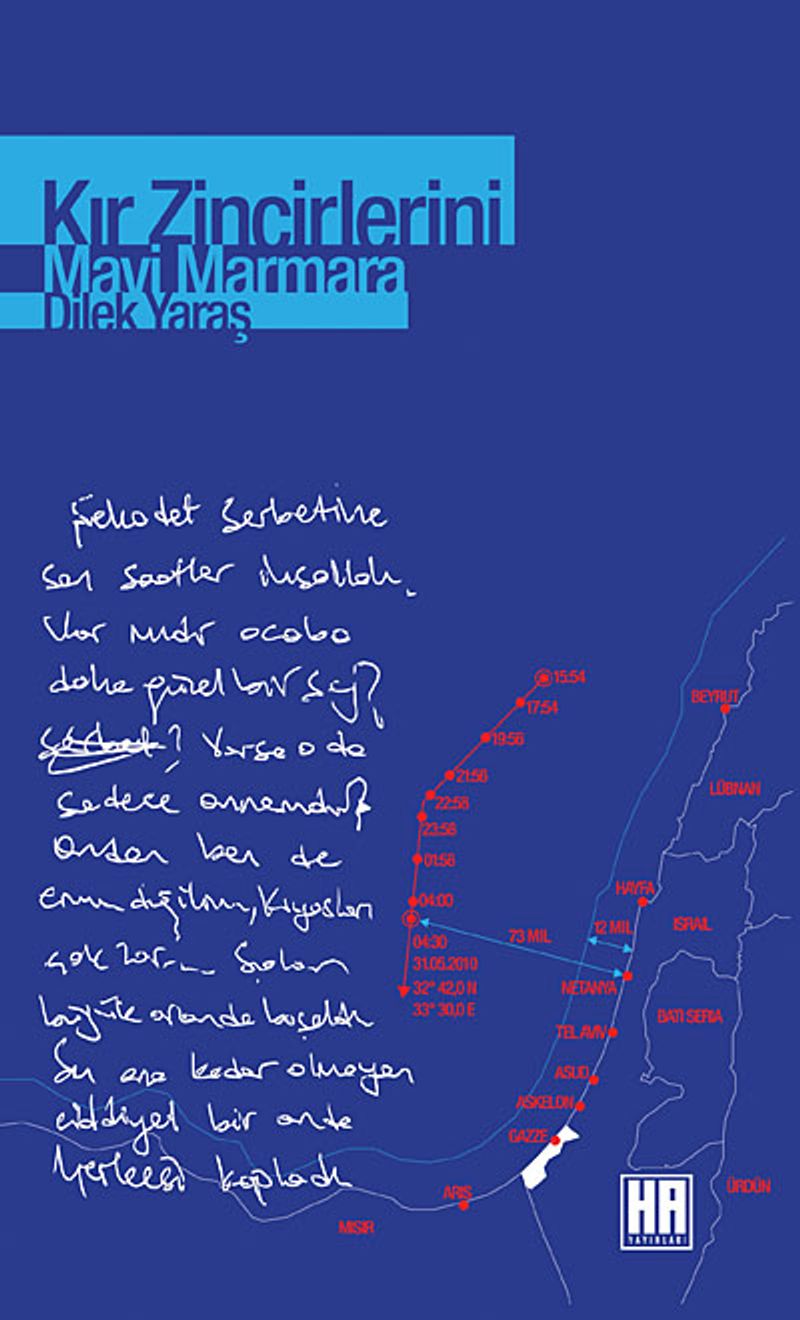 Kır Zincirlerini
Mavi Marmara
Dilek Yaraş
Şehadet Şerbetine
son saatler inşallah.
Var mıdır acaba
daha güzel bir şey?
şerbet? Varsa o da
sadece annemdir?
Ondan ben de
emin değilim, Kıyasları
çok zor... Salon
büyük oranda boşaldı
Şu ana kadar olmayan
ciddiyet bir anda
herkesi kapladı
15:54
17:54
19:56
21:56
22:58
23:58
01:58
04:00
04:30
31.05.2010
32° 42,0 N
33° 30,0 E
73 MIL
12 MIL
BEYRUT
LÜBNAN
HAYFA
ISRAIL
NETANYA
BATI SERIA
TEL AVIV
ASUD
ASKELON
GAZZE
ARIS
MISIR
ÜRDÜN
HA
YAYINLARI